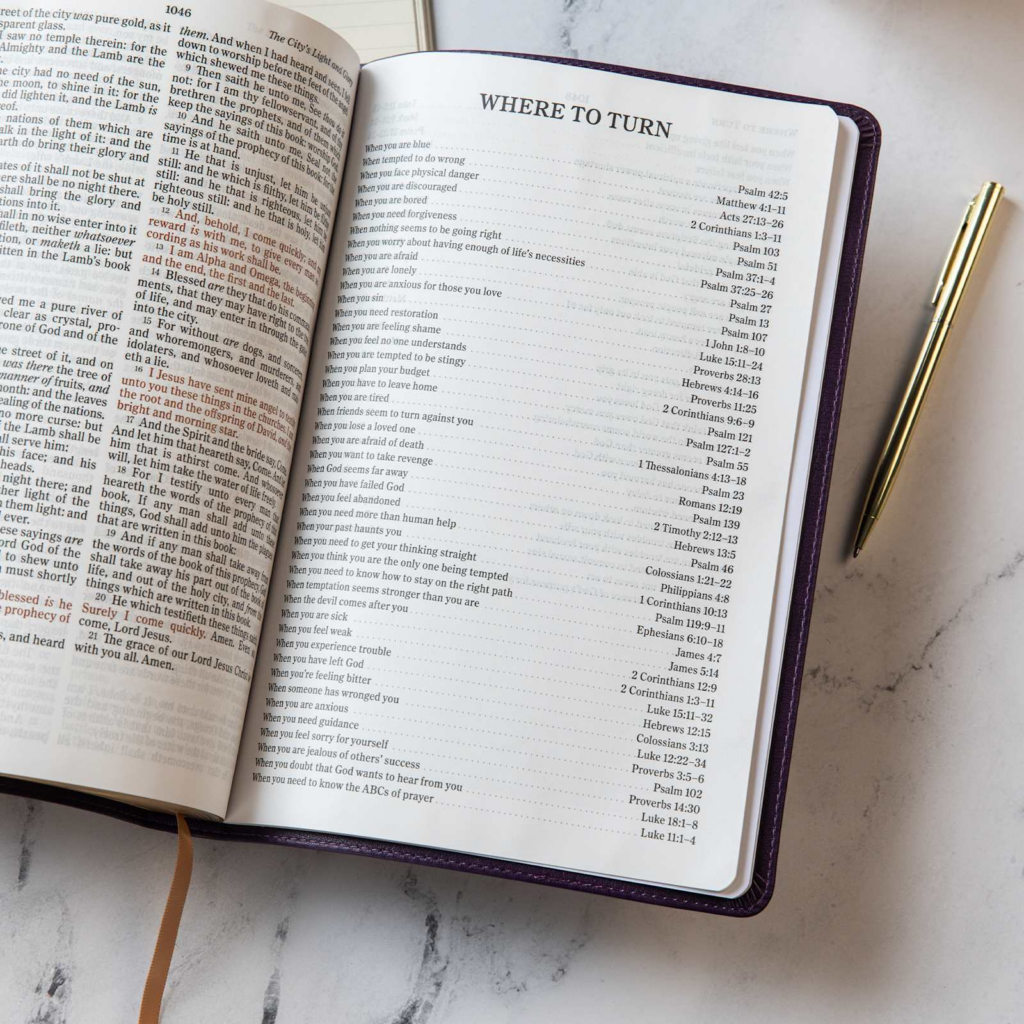 1046
street of the city was pure gold, as it
transparent glass.
I saw no temple therein: for the
Almighty and the Lamb are the
the city had no need of the sun,
the moon, to shine in it: for the
did lighten it, and the Lamb is
nations of them which are
walk in the light of it: and the
earth do bring their glory and
gates of it shall not be shut at
there shall be no night there.
shall bring the glory and
nations into it.
shall in no wise enter into it
defileth, neither whatsoever
or maketh a lie: but
written in the Lamb's book
me a pure river of
clear as crystal, pro-
throne of God and of the
the street of it, and on
was there the tree of
manner of fruits, and
month: and the leaves
healing of the nations.
no more curse: but
of the Lamb shall be
shall serve him:
his face; and his
heads.
night there; and
light of the
them light: and
ever.
These sayings are
Lord God of the
to shew unto
must shortly
blessed is he
prophecy of
and heard
The City's Light and
them. And when I had heard and seen, I
down to worship before the feet of the
which shewed me these things.
9 Then saith he unto me, See thou do
not: for I am thy fellowservant, and of
brethren the prophets, and of them
keep the sayings of this book: worship God.
10 And he saith unto me, Seal not
sayings of the prophecy of this book: for
time is at hand.
11 He that is unjust, let him be unjust
still: and he which is filthy, let him be
still: and he that is righteous, let him
righteous still: and he that is holy, let
be holy still.
12 And, behold, I come quickly; and
reward is with me, to give every man
cording as his work shall be.
13 I am Alpha and Omega, the beginning
and the end, the first and the last.
14 Blessed are they that do his command-
ments, that they may have right to the
of life, and may enter in through the
into the city.
15 For without are dogs, and
and whoremongers, and murderers, and
idolaters, and whosoever loveth and
eth a lie.
16 I Jesus have sent mine angel to
unto you these things in the churches. I
the root and the offspring of David, and
bright and morning star.
17 And the Spirit and the bride say, Come.
And let him that heareth say, Come. And
him that is athirst come. And whosoever
will, let him take the water of life freely.
18 For I testify unto every man that
heareth the words of the prophecy of
book, If any man shall add unto these
things, God shall add unto him the plagues
that are written in this book:
19 And if any man shall take away from
the words of the book of this prophecy, God
shall take away his part out of the book of
life, and out of the holy city, and from the
things which are written in this book.
20 He which testifieth these things saith,
Surely I come quickly. Amen. Even so,
come, Lord Jesus.
21 The grace of our Lord Jesus Christ be
with you all. Amen.
WHERE TO TURN
When you are blue Psalm 42:5
When tempted to do wrong Matthew 4:1–11
When you face physical danger Acts 27:13–26
When you are discouraged 2 Corinthians 1:3–11
When you are bored Psalm 103
When you need forgiveness Psalm 51
When nothing seems to be going right Psalm 37:1–4
When you worry about having enough of life's necessities Psalm 37:25–26
When you are afraid Psalm 27
When you are lonely Psalm 13
When you are anxious for those you love Psalm 107
When you sin 1 John 1:8–10
When you need restoration Luke 15:11–24
When you are feeling shame Proverbs 28:13
When you feel no one understands Hebrews 4:14–16
When you are tempted to be stingy Proverbs 11:25
When you plan your budget 2 Corinthians 9:6–9
When you have to leave home Psalm 121
When you are tired Psalm 127:1–2
When friends seem to turn against you Psalm 55
When you lose a loved one 1 Thessalonians 4:13–18
When you are afraid of death Psalm 23
When you want to take revenge Romans 12:19
When God seems far away Psalm 139
When you have failed God 2 Timothy 2:12–13
When you feel abandoned Hebrews 13:5
When you need more than human help Psalm 46
When your past haunts you Colossians 1:21–22
When you need to get your thinking straight Philippians 4:8
When you think you are the only one being tempted 1 Corinthians 10:13
When you need to know how to stay on the right path Psalm 119:9–11
When temptation seems stronger than you are Ephesians 6:10–18
When the devil comes after you James 4:7
When you are sick James 5:14
When you feel weak 2 Corinthians 12:9
When you experience trouble 2 Corinthians 1:3–11
When you have left God Luke 15:11–32
When you're feeling bitter Hebrews 12:15
When someone has wronged you Colossians 3:13
When you are anxious Luke 12:22–34
When you need guidance Proverbs 3:5–6
When you feel sorry for yourself Psalm 102
When you are jealous of others' success Proverbs 14:30
When you doubt that God wants to hear from you Luke 18:1–8
When you need to know the ABCs of prayer Luke 11:1–4